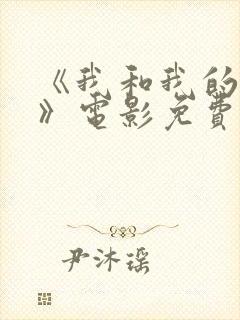 《我和我的
》电影免费
尹沐瑶